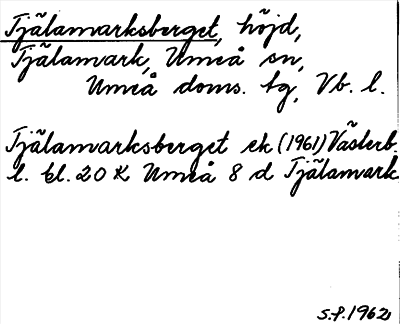 Tjälamarksberget, höjd,
Tjälamark, Umeå sn,
Umeå doms. tg, Vb. l.
Tjälamarksberget ek (1961) Västerb.
l. bl. 20 K Umeå 8 d Tjälamark
S.F. 1962